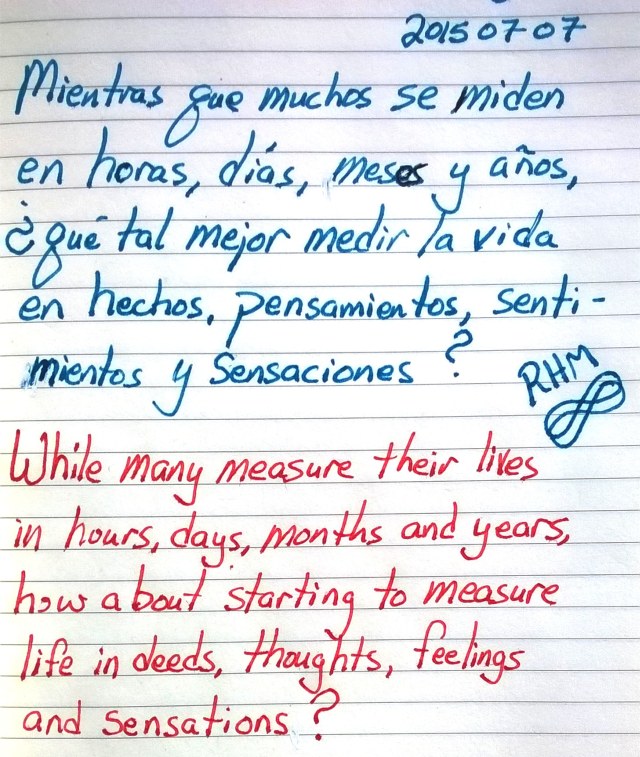 2015 07 07
Mientras que muchos se miden
en horas, días, meses y años,
¿qué tal mejor medir la vida
en hechos, pensamientos, senti-
mientos y sensaciones?
RHM
While many measure their lives
in hours, days, months and years,
how about starting to measure
life in deeds, thoughts, feelings
and sensations?